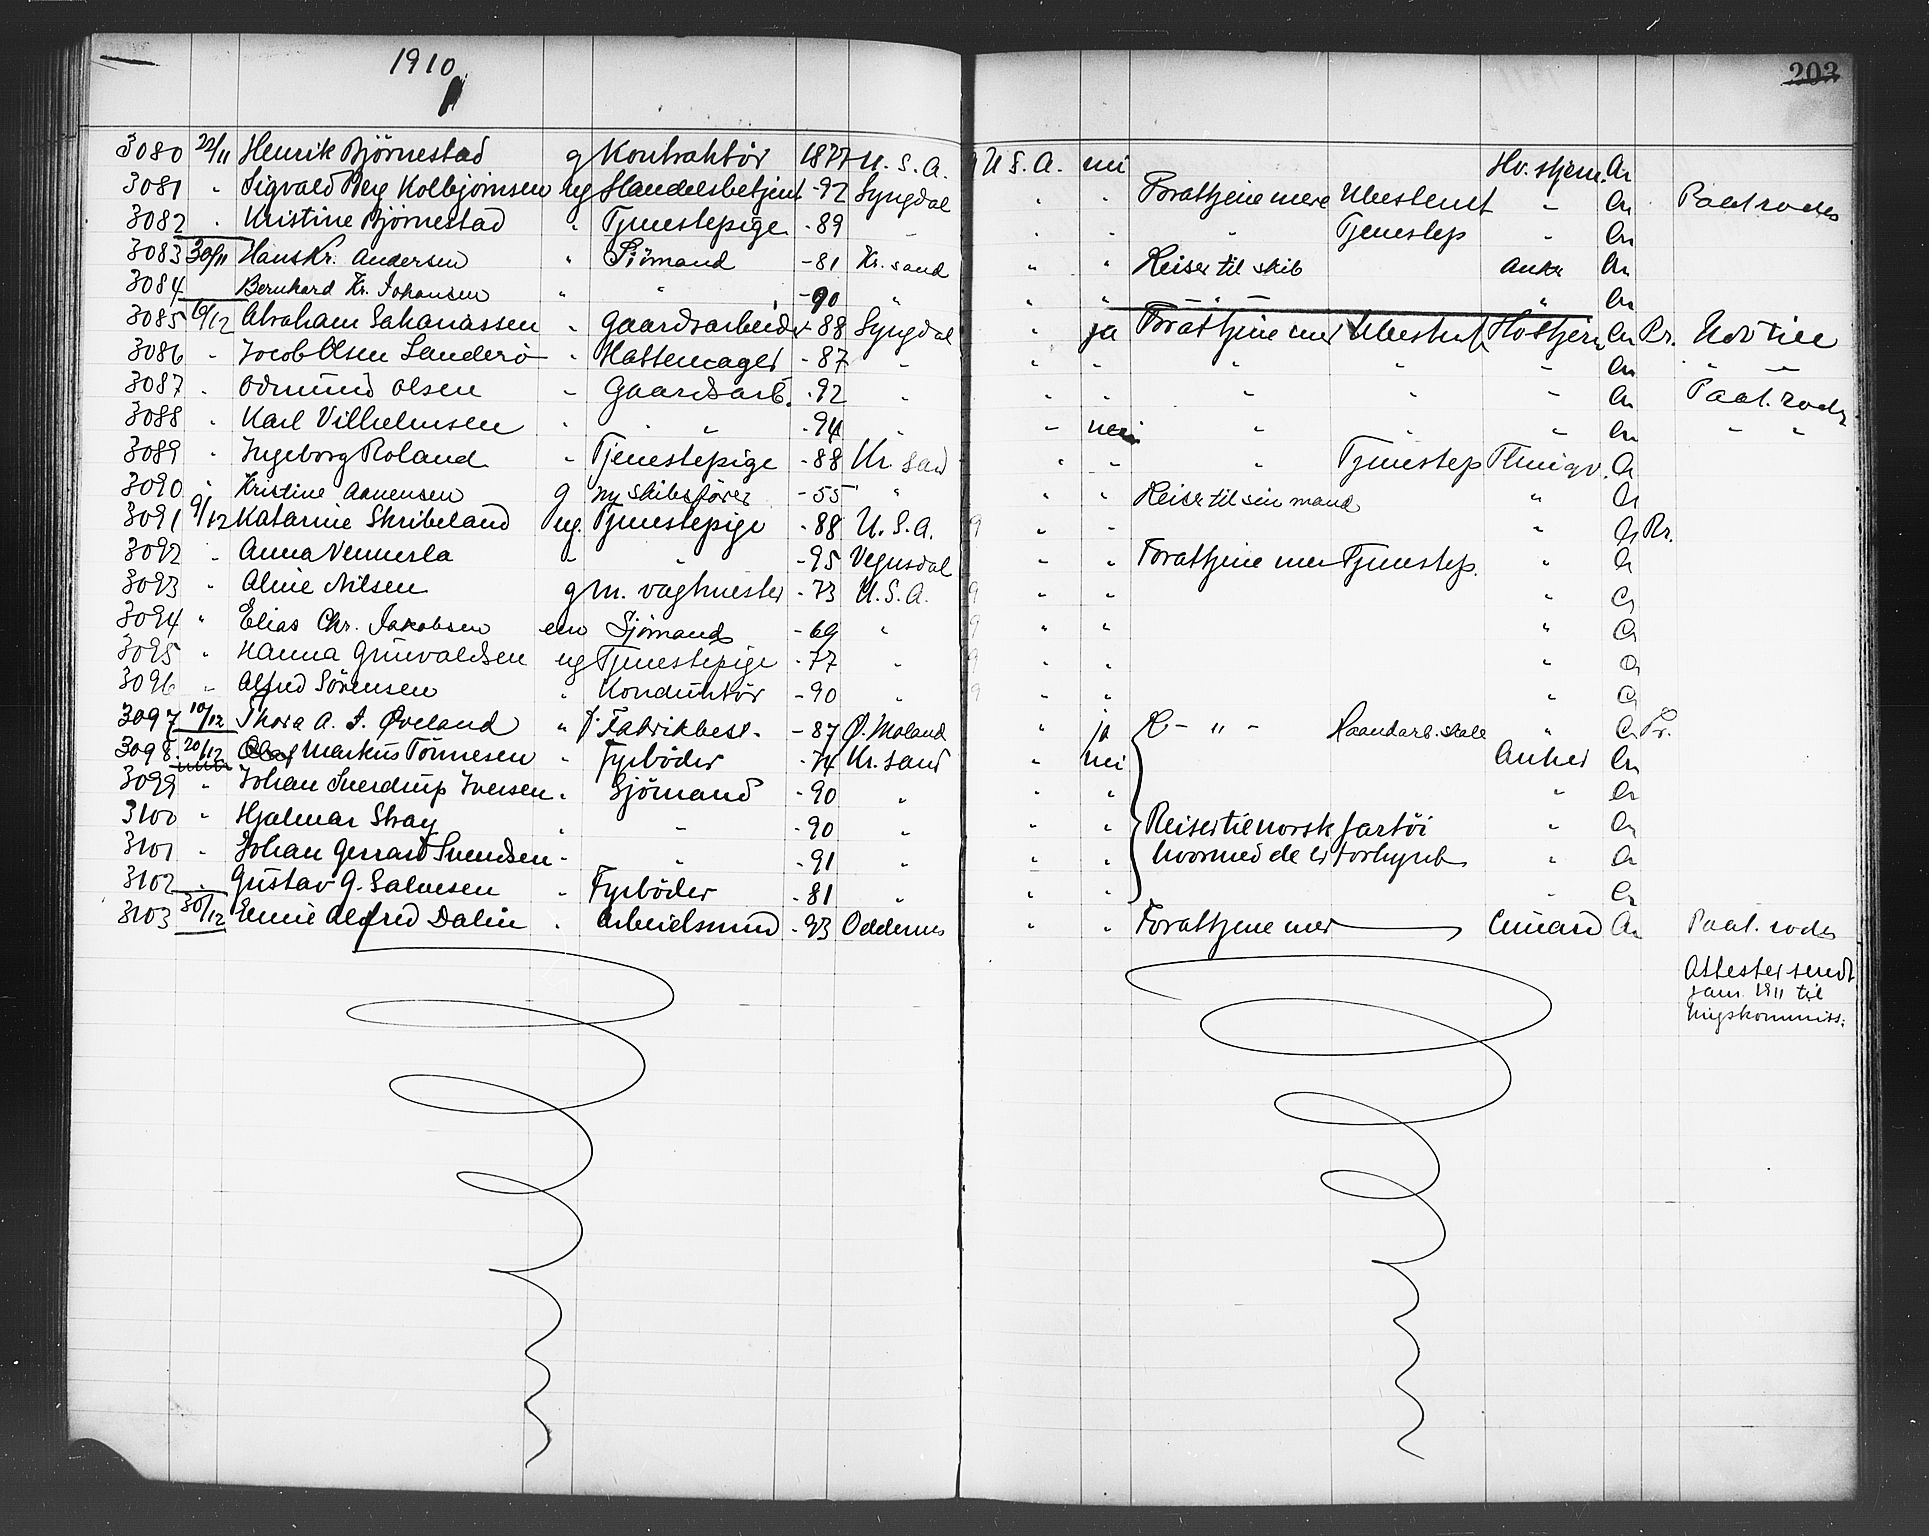 1910
203
3080 22/11 Henrik Bjørnestad g Kontraktör 1877 U. S. A. g U S. A. nei Hv. stjern. An
3081 " Sigvald Berg Kolbjörnsen ug Handelsbetjent -92 Lyngdal " " Forattjene mere Ubestemt " An Paat. rodes
3082 " Kristine Bjørnestad " Tjenestepige -89 " " " " Tjenestep " An
3083 30/11 Hans Kr. Andersen " Sjömand -81 Kr. sand " " Reiser til skib Anker An
3084 Bernhard Kr. Johansen " " -90 " " " " " " An
3085 6/12 Abraham Sakariassen " Gaardsarbeider -88 Lyngdal " ja Forattjene mer Ubestemt Hvstjern An Pr.
3086 " Jacob Olsen Sanderö " Hattemager -87 " " " " " " An "
3087 " Odmund Olsen " Gaardsarb. -92 " " " " " " An Paat. rodes
3088 " Karl Vilhelmsen " " " -94 " " nei " " " An " "
3089 " Ingeborg Roland " Tjenestepige -88 Kr. sand " " " Tjenestep Thingv. An
3090 " Kristine Aanensen g m/ skibsfører -55 " " " Reiser til sin mand " An
3091 9/12 Katarine Skribeland ug. Tjenestepige -88 U. S. A. 9 " " " An Pr.
3092 " Anna Vennesla " " -95 Vegusdal " " Forattjene mer Tjenestep. " An
3093 " Aline Nilsen g m. vagtmester -73 U. S. A. 9 " " " An
3094 " Elias Chr. Jakobsen em Sjömand -69 " 9 " " " An
3095 " Hanna Grunvaldsen ug Tjenestepige -77 " 9 " " " An
3096 " Alfred Sörensen " Konduktör -90 " 9 " " " An
3097 10/12 Thora A. I. Øveland " f. Fabrikbest. -87 Ø. Moland " ja R - " - Haandarb. skole " An Pr.
3098 20/12 Markus Tönnesen " Fyrböder -74 Kr. sand " nei Anker An
3099 " Johan Sverdrup Iversen " Sjömand -90 " " " " An
3100 " Hjalmar Stray " " -90 " " " Reiser til norsk fartöi " An
3101 " Johan Gerrard Svendsen " " -91 " " " hvormed de er forhyret " An
3102 " Gustav G. Salvesen " Fyrböder -81 " " " " An
3103 30/12 Alfred Dalen " Arbeidsmand -93 Oddernes " " Forattjene mer Cunard An Paat. rodes
Attester sendt
jan. 1911 til